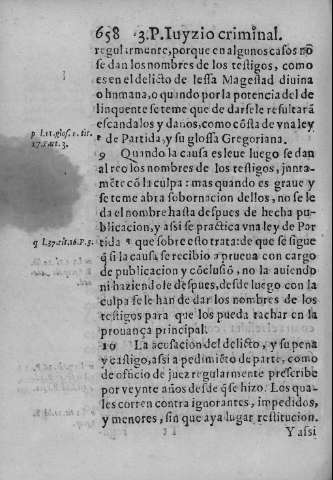 658 3.P. Iuyzio criminal.
regularmente, porque en algunos casos nõ
se dan los nombres de los testigos, como
es en el delicto de lessa Magestad diuina
o humana, o quando por la potencia del de
linquente se teme que de darsele resultarã
escandalos y daños, como cõsta de vna ley
p de Partida, y su glossa Gregoriana.
p l.11. glos. 1. tit.
17. Part. 3.
9 Quando la causa es leue luego se dan
al reo los nombres de los testigos, junta-
mẽte cõ la culpa: mas quando es graue y
se teme abra sobornacion dellos, no se le
da el nombre hasta despues de hecha pu-
blicacion, y assi se practica vna ley de Par-
tida q que sobre esto trata: de que se sigue
q l.37. tit. 16. P. 3.
q̃ si la causa se recibio a prueua con cargo
de publicacion y cõclusiõ, no la auiendo
ni haziendole despues, desde luego con la
culpa se le han de dar los nombres de los
testigos para que los pueda tachar en la
prouança principal.
10 La acusacion del delicto, y su pena
y castigo, assi a pedimiẽto de parte, como
de oficio de juez regularmente prescribe
por veynte años desde q̃ se hizo. Los qua-
les corren contra ignorantes, impedidos,
y menores, sin que aya lugar restitucion.
Y assi